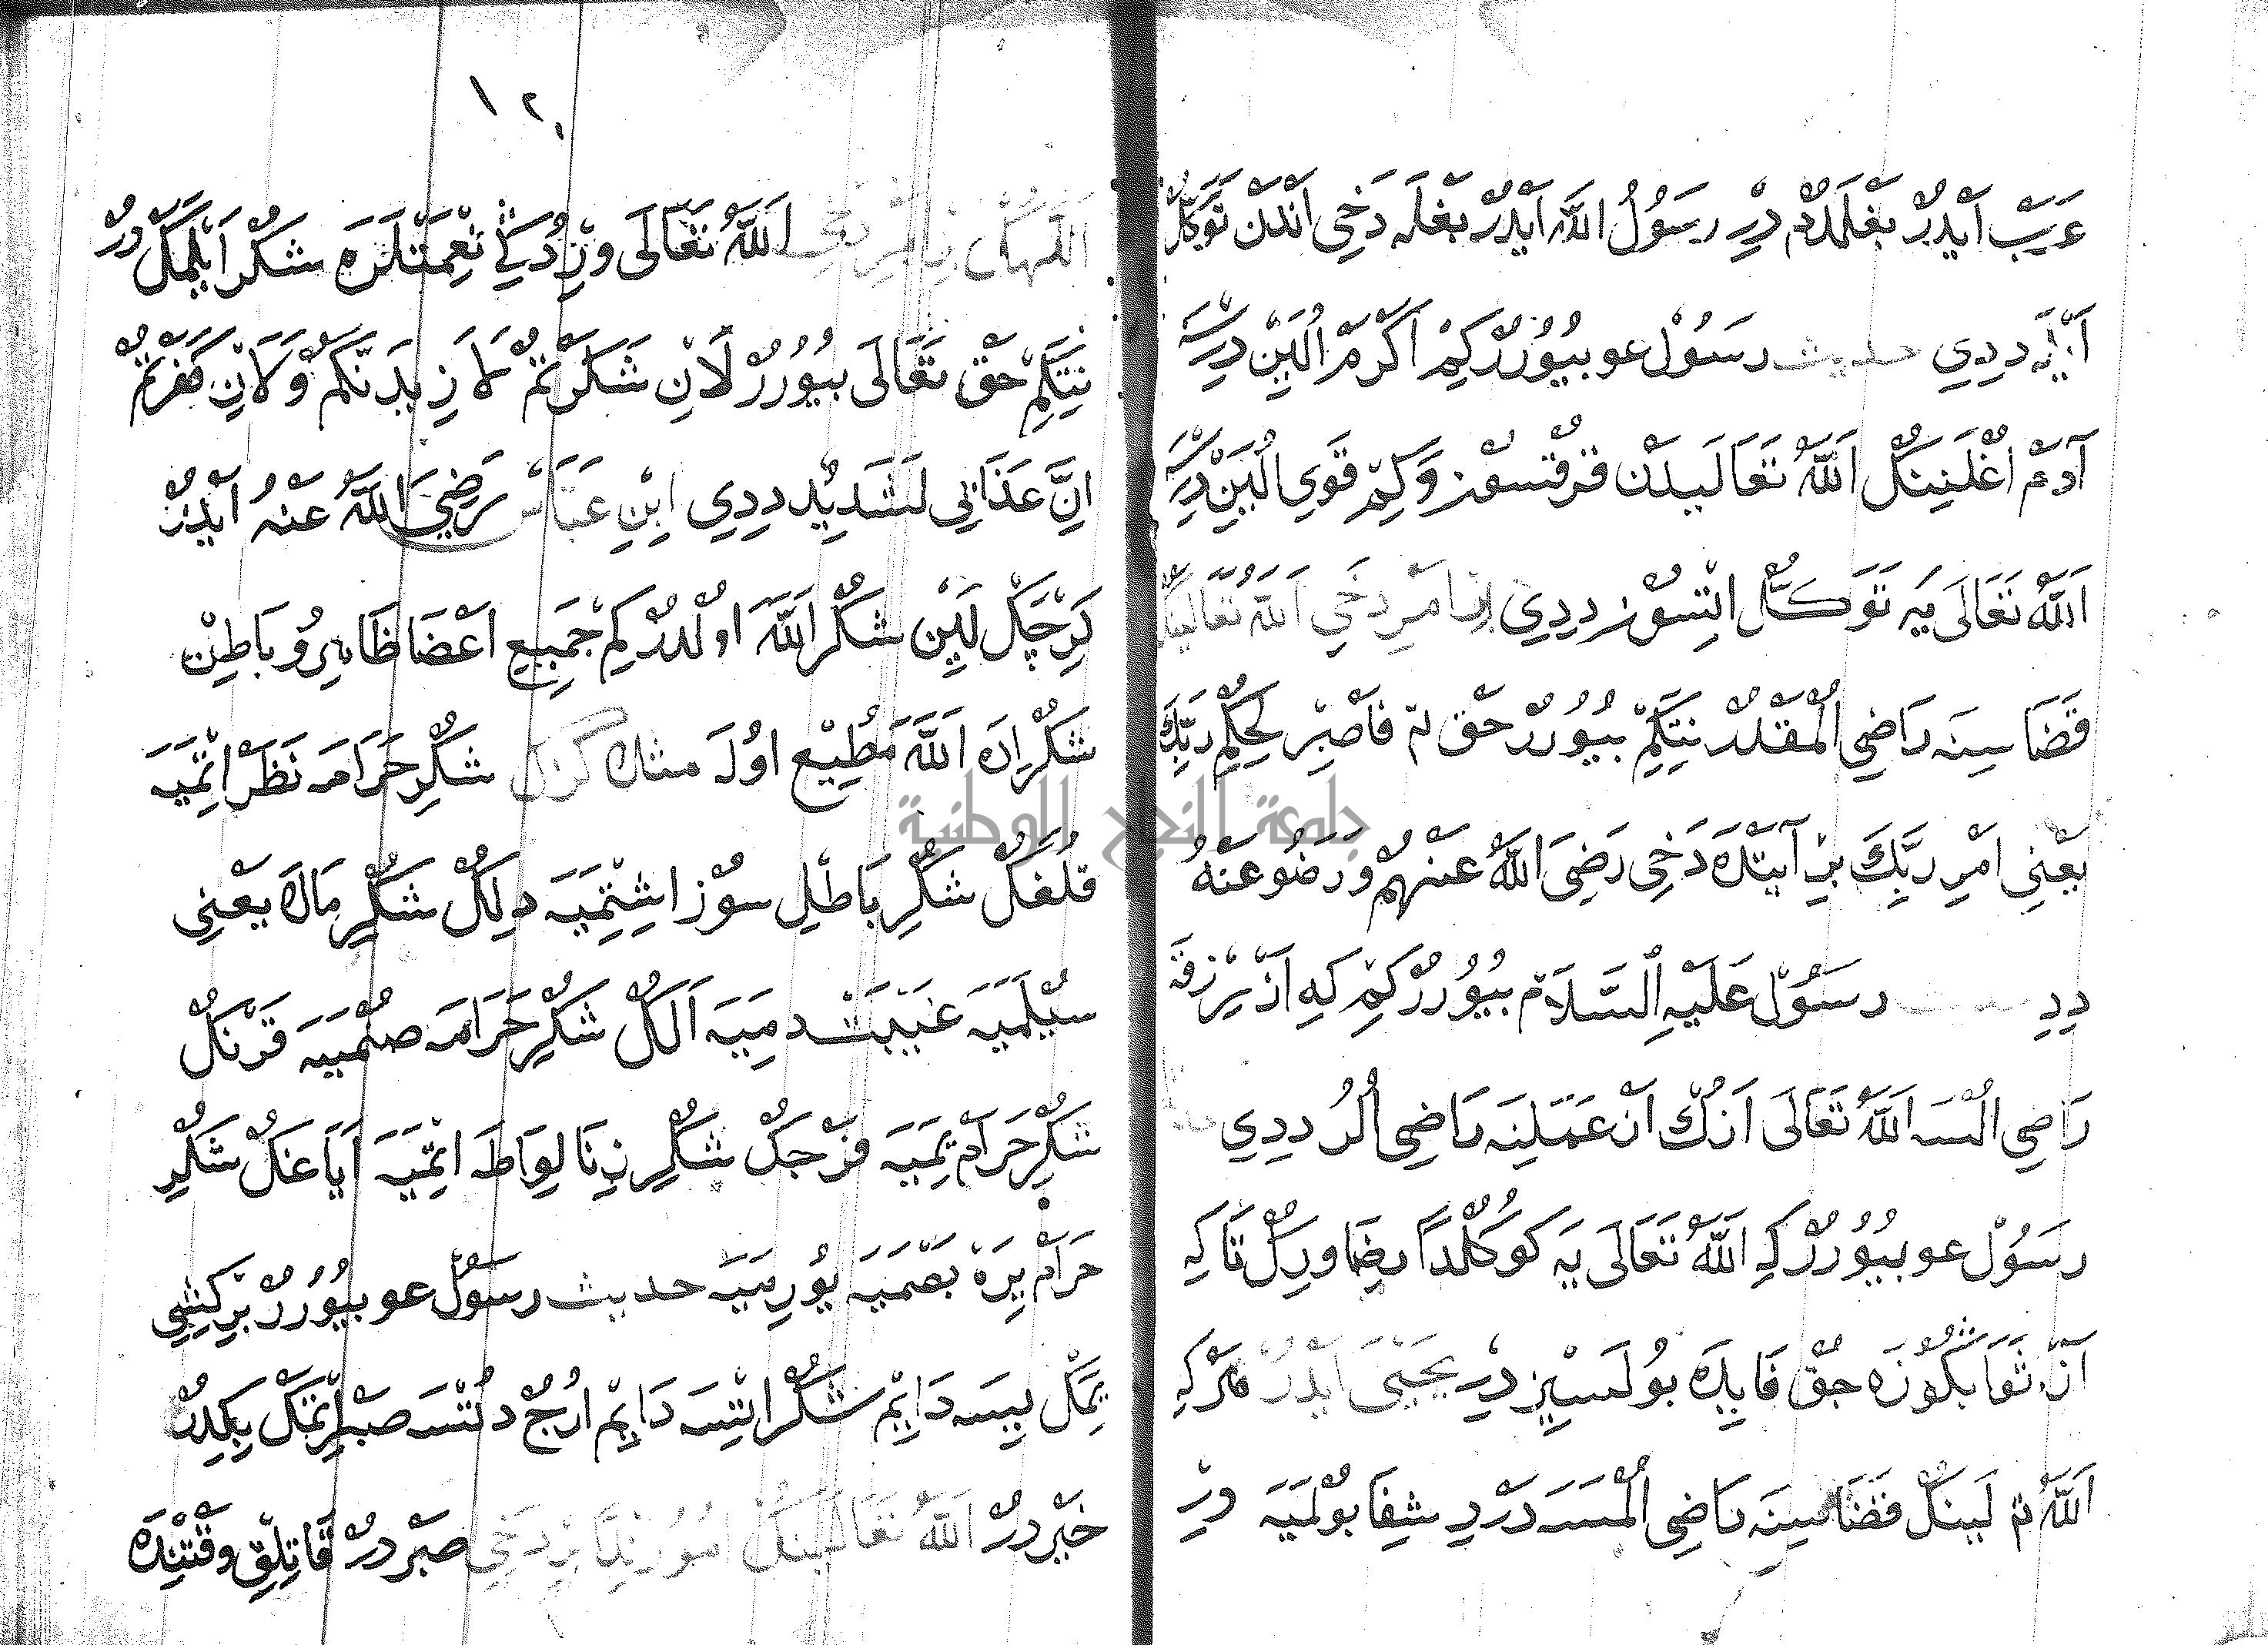 عَرَبْ اَيْدُرْ بَغْلَمَدُمْ دِرِ رسَوُلُ اللَّهِ اَيْدُرْ بَغْلَه دَخِى اَنْدَنْ تَوَكُّلْ
اَيْلَه دِدِي حديث رسَوُلْ عو بيُوُرُرْ كِمْ اَكْرَمْ اُلَيِنْ دِرسَه
آدَمْ اُغْلَنِنِكْ اَللَّهُ تعَالَيدَنْ قرقسُوْن وَكِمْ قَوِي اُلَيِنْ دِرسَه
اَللَّهُ تَعَالَى يَه تَوَكُّلْ اِتِسُوْن دِدِي بِرِ دَخِي اَللَّهُ تعَالَينِكْ
قَضَا سِنَه رَاضِي اُلْمَقْدُرْ نِتَكِمْ بُيُوُرُرْ حَقْ تع فَاصْبِرْ لِحُكْمِ رَبِّكَ
يَعْنِي اَمْرِ رَبِّكَ بِرْ آيَتْدَه دَخِى رَضِىَ اللَّهُ عَنْهُمْ وَرَضُو عَنْهُ
دِدِ رسَوُلْ عَلَيْهِ اَلسَّلَامْ بيُوُرُرْ كِمْ كِه اَزْ رِزْقَه
رَاضِي اُلْسَه اَللَّهُ تَعَالَى اَنُكْ اَزْ عَمَلِنَه رَاضِى اُلُرْ دِدِي
رسَوُلْ عو بيُوُرُرْ كِه اَللَّهُ تَعَالَى يَه كوكُلْدَا رِضَا وِرِكْ تَا كِه
ثَوَابْكُوزَه حَقْ فَايِدَه بُولَسِيزْ دِرِ يَحْيَى اَيْدُرْ هَرْ كِه
اَللَّهُ تع لَينِكْ قَضَاسِينَه رَاضِى اُلْمَسَه دَرْدِ شِفَا بُولْمَيَه دِرِ
١٢
اَللَّهُ تَعَالَى وِرْدُكِي نِعْمَتْلَرَه شُكُرْ اَيْلَمَكْ دُرْ
نِتَكِمْ حَقْ تعَالَى بيُوُرُرْ لَاَنِ شَكَرْتُمْ لَاَزِيدَنَّكُمْ وَلَاَنِ كَفَرْتُمْ
اِنَّ عَذَابِى لَشَدِيدْ دِدِي اِبْنِ عَبَّاسْ رَضِيَ اللَّهُ عَنْهُ اَيْدُرْ
كَرْچَكْ لَيِنْ شُكُرْ اَللَّهَ اولْدُرْ كِمْ جَمِيعِ اَعْضَا ظَاهِرُ وبَاطِنْ
شُكْرِدَه اَللَّهَ مُطِيعْ اولَه مثلا كُزِكْ شُكْرِ حَرَامَه نَظَرْ اِتْمَيَه
قُلَغِكْ شُكْرِ بَاطْلِ سوُزْ اِشِتْمِيَه دِلِكْ شُكْرِ مَالَه يَعْنِي
سُيْلَمَيَه غَيْبَتْ دِمِيَه اَلِكْ شُكْرِ حَرَامَه صُنْمَيَه قَرْنِكْ
شُكْرِ حَرَامْ يِمَيَه فَرْجِكْ شُكْرِ زِنَا لِوَاطَه اِتْمَيَه اَيَاغِكْ شُكْرِ
حَرَامْ يِرَه بَصْمَيَه يُورِمَيَه حديث رسَوُلْ عو بيُوُرُرْ بِرْ كِشِي
يِمَكْ يِيسَه دَايِمْ شُكُرْ اِتِسَه دَايِمْ اُرُجْ دُتْسَه صَبْر اِتْمَكْ بِكِدُرْ
خَيْرْدُرْ اَللَّهُ تعَالَينِكْ بِرِ دَخِي صَبْر دُرْ قَاتِلِقْ وَقْتِنْدَه